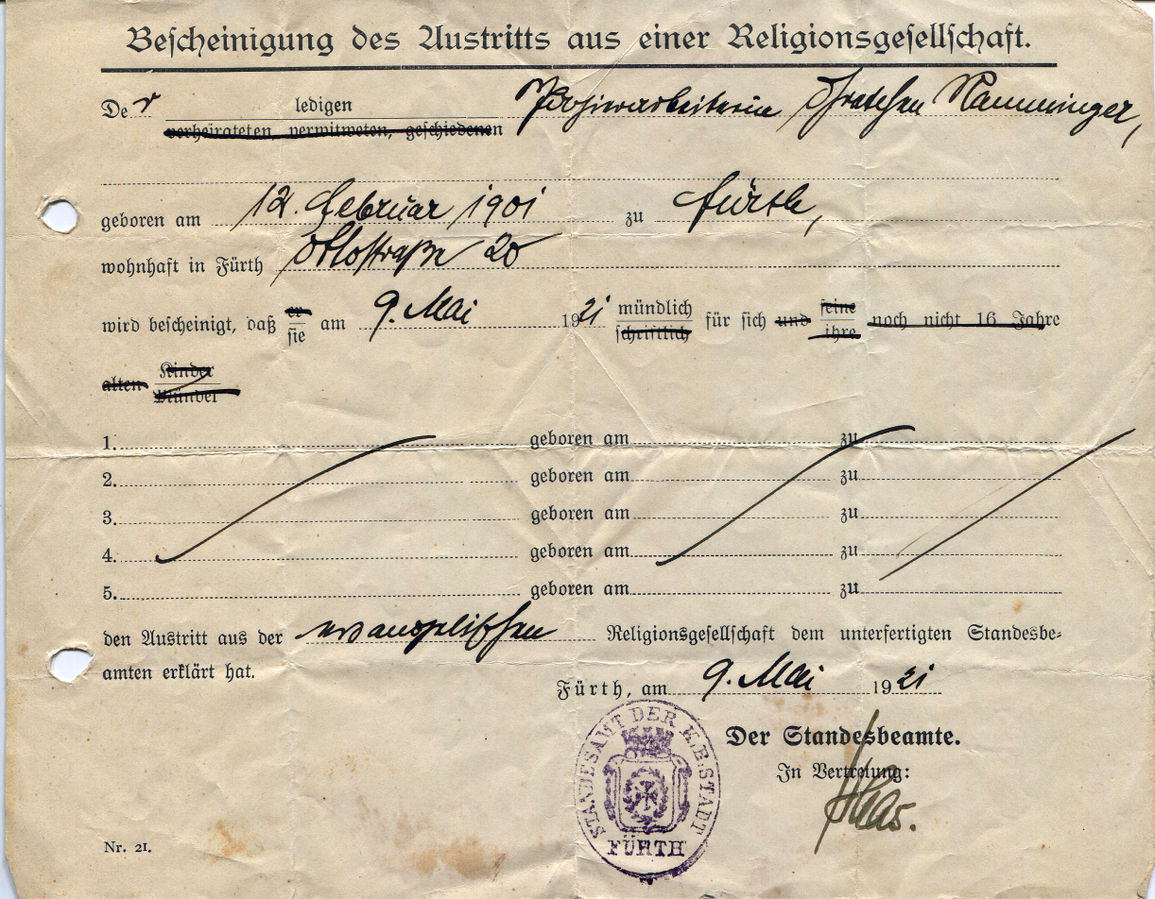 Bescheinigung des Austritts aus einer Religionsgesellschaft.
Der ledigen
verheirateten, verwitweten, geschiedenen
geboren am 12. Februar 1901 zu Fürth,
wohnhaft in Fürth Ottostraße 20
wird bescheinigt, daß er sie am 9. Mai 1921 mündlich schriftlich für sich und seine ihre noch nicht 16 Jahre
alten Kinder Mündel
1. geboren am zu
2. geboren am zu
3. geboren am zu
4. geboren am zu
5. geboren am zu
den Austritt aus der evangelischen Religionsgesellschaft dem unterfertigten Standesbe-
amten erklärt hat.
Fürth, am 9. Mai 1921
Der Standesbeamte.
In Vertretung:
Haas.
STANDESAMT DER K.B. STADT
FÜRTH
Nr. 21.